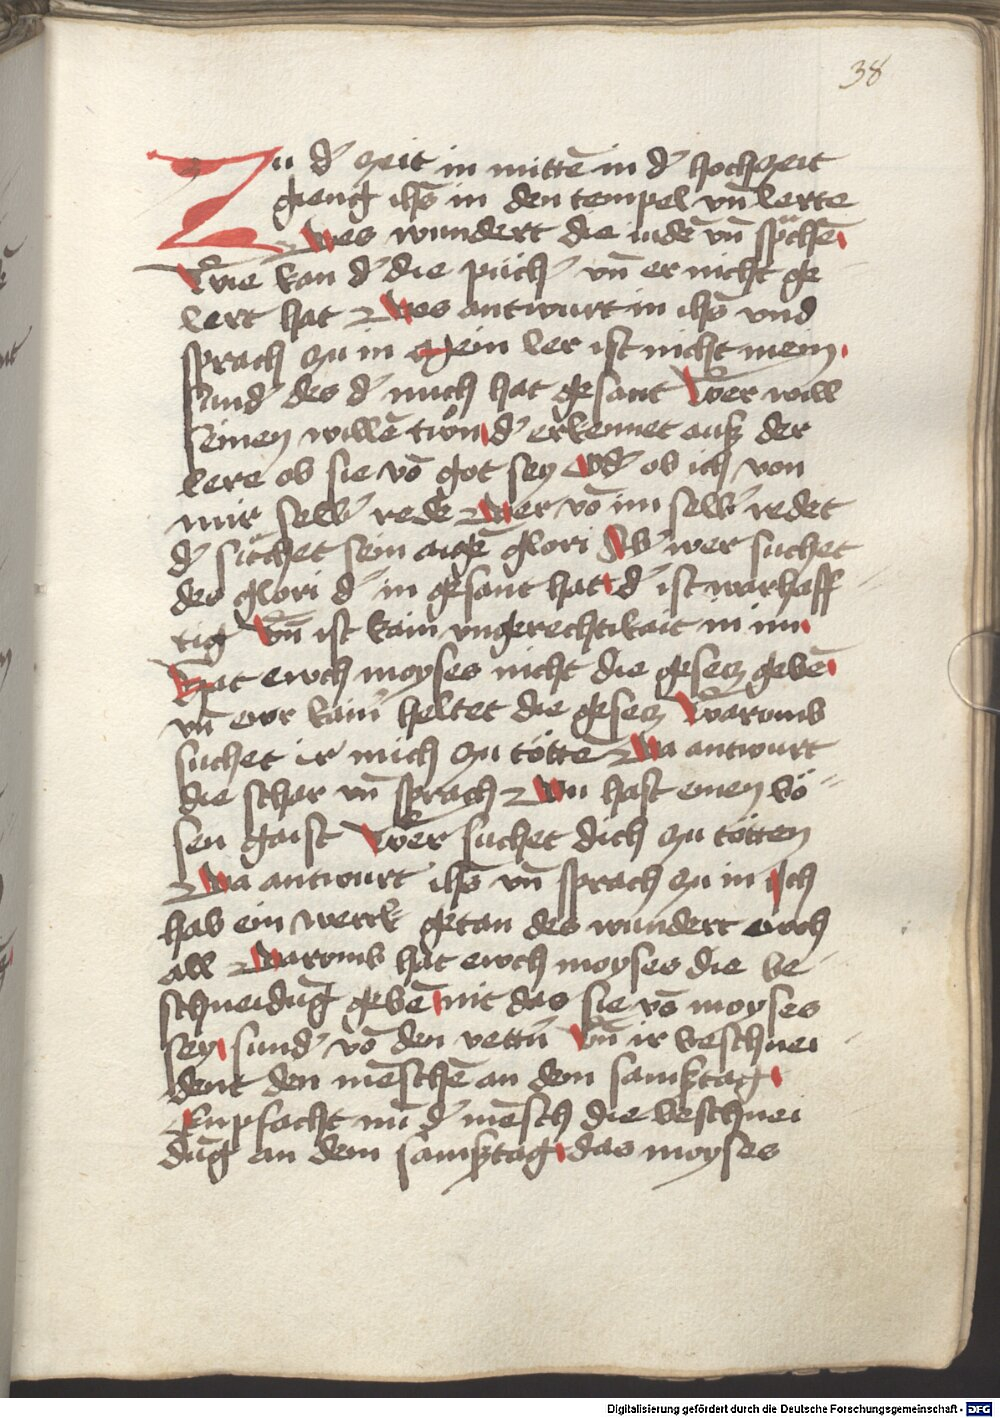 38
Zu d' zeit in mittē in d' hochzeit
gieng ihs̄ in den tempel vn̄ lerte
Des wundert die iudē vn̄ sp̈chē
Wie kan d' die püch' vn̄ er nicht ge
lert hat Des antwurt in ihs̄ vnd
sprach zu in Mein ler ist nicht mein
Sund' des d' mich hat gesant Wer will
seinen willē tůn d' erkennet auß der
lere ob sie vō got sey Od' ob ich von
mir selb' rede Wer vō im selb' redet
d' süchet sein aigē glori Ab' wer suchet
des glori d' in gesant hat d' ist warhaff
tig Vn̄ ist kain vngerechtikait in im
Hat ewch moyses nicht die gesecz gebē
vn̄ ewr kain' heltet die gesecz Warumb
suchet ir mich zu töttē Da antwurt
die schar vn̄ sprach Du hast einen bö
sen gaist Wer suchet dich zu tötten
Da antwurt ihs̄ vn̄ sprach zu in Ich
hab ein werck getan des wundert ewch
all Darumb hat ewch moyses die be
schneidūg gebē nit das sie vō moyses
sey sund' vō den vettn̄ Vn̄ ir beschnei
dent den mēschē an dem samßtag
Enpfacht nū d' mēsch die beschnei
dūg an dem samßtag das moyses
Digitalisierung gefördert durch die Deutsche Forschungsgemeinschaft - DFG